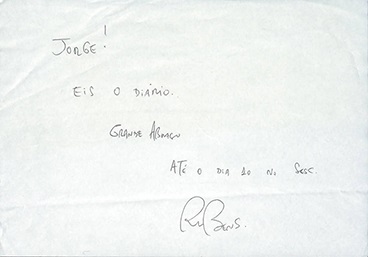 JORGE!
EIS O DIÁRIO.
GRANDE ABRAÇO
ATÉ O DIA 20 NO SESC.